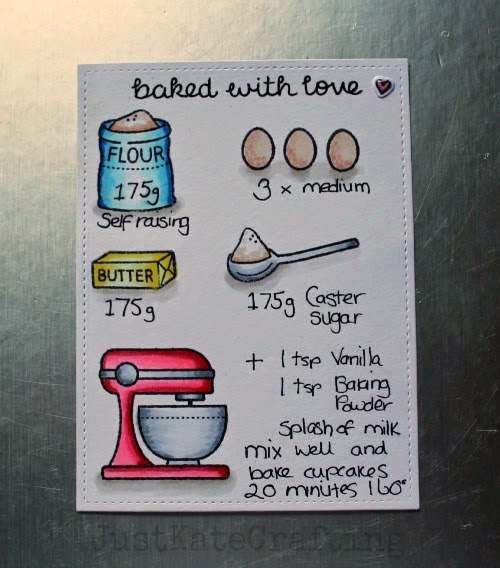 baked with love
FLOUR
175g
Self raising
3 x medium
BUTTER
175g
175g Caster
sugar
+ 1 tsp Vanilla
1 tsp Baking
Powder
Splash of milk
mix well and
bake cupcakes
20 minutes 160°
JustKateCrafting